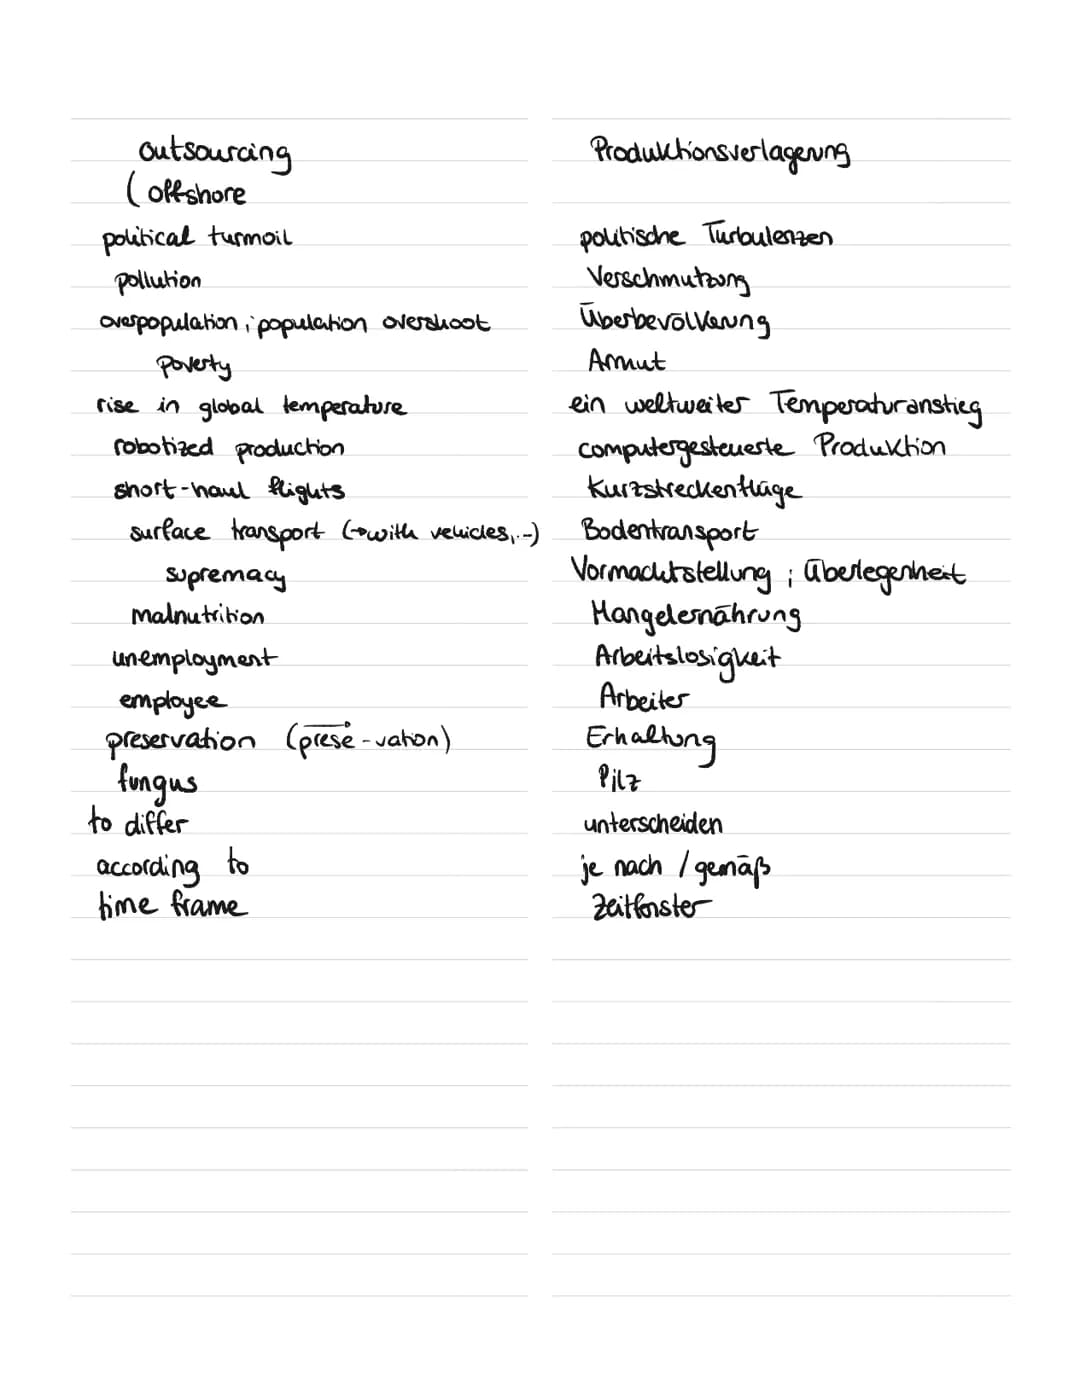 outsourcing Produktionsverlagerung
( offshore
political turmoil politische Turbulenzen
pollution Verschmutzung
overpopulation ; population overshoot Überbevölkerung
Poverty Armut
rise in global temperature ein weltweiter Temperaturanstieg
robotized production computergesteuerte Produktion
short-haul flights Kurzstreckenflüge
surface transport (→with vehicles,..) Bodentransport
supremacy Vormachtstellung ; Überlegenheit
malnutrition Mangelernährung
unemployment Arbeitslosigkeit
employee Arbeiter
preservation (prese-vation) Erhaltung
fungus Pilz
to differ unterscheiden
according to je nach / gemäß
time frame Zeitfenster